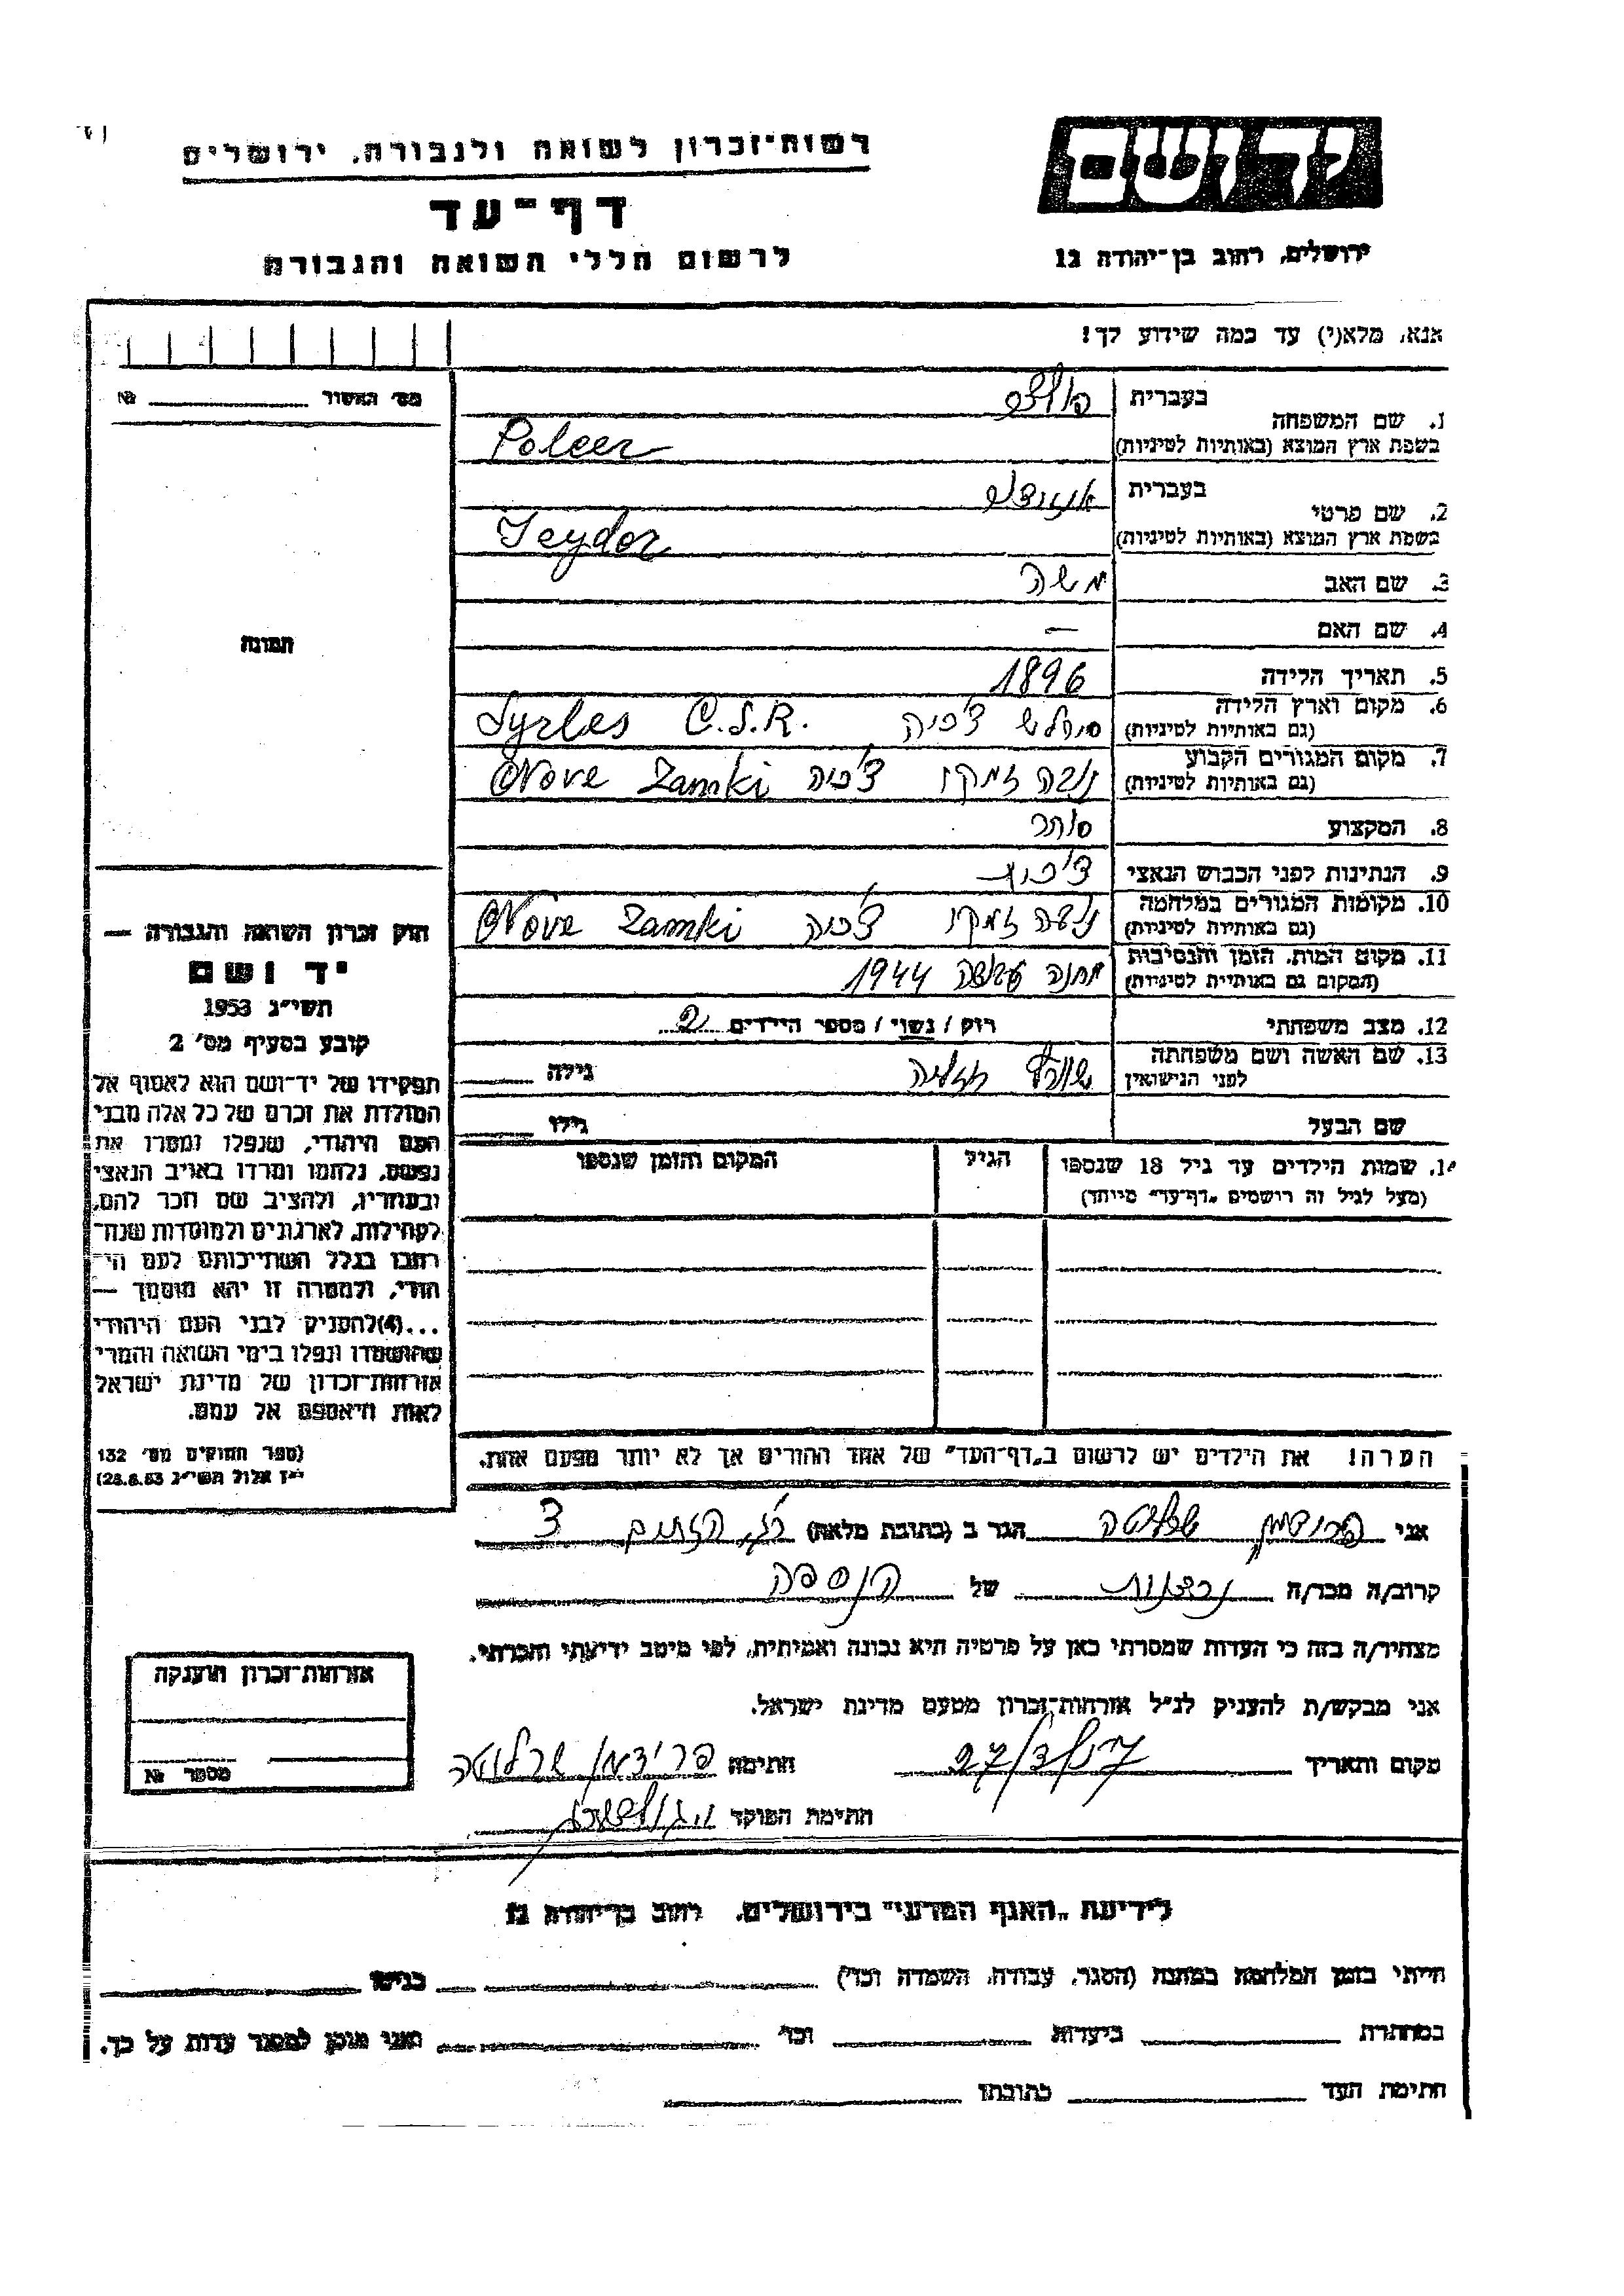 רשות־זכרון לשואה ולגבורה, ירושלים
דף־עד
לרשום חללי השואה והגבורה
יד ושם
ירושלים, רחוב בן־יהודה 12
אנא, מלא(י) עד כמה שידוע לך!
מס' האשור № 
תמונה
1. שם המשפחה
בעברית
בשפת ארץ המוצא (באותיות לטיניות) Poleer
2. שם פרטי
בעברית
בשפת ארץ המוצא (באותיות לטיניות)
3. שם האב משה
4. שם האם —
5. תאריך הלידה 1896
6. מקום וארץ הלידה צ'כיה
(גם באותיות לטיניות) Syrles C.S.R.
7. מקום המגורים הקבוע נובה זמקי צ'כיה
(גם באותיות לטיניות) Nove Zamki
8. המקצוע סוחר
9. הנתינות לפני הכבוש הנאצי
10. מקומות המגורים במלחמה נובה זמקי צ'כיה
(גם באותיות לטיניות) Nove Zamki
11. מקום המות, הזמן והנסיבות מחנה עבודה 1944
(המקום גם באותיות לטיניות)
12. מצב משפחתי רווק / נשוי / מספר הילדים 2
13. שם האשה ושם משפחתה
לפני הנישואין גילה
שם הבעל גילו
14. שמות הילדים עד גיל 18 שנספו
(מעל לגיל זה רושמים "דף־עד" מיוחד)
הגיל
המקום והזמן שנספו
חוק זכרון השואה והגבורה —
יד ושם
תשי"ג 1953
קובע בסעיף מס' 2
תפקידו של יד־ושם הוא לאסוף אל
המולדת את זכרם של כל אלה מבני
העם היהודי, שנפלו ומסרו את
נפשם, נלחמו ומרדו באויב הנאצי
ובעוזריו, ולהציב שם וזכר להם,
לקהילות, לארגונים ולמוסדות שנח־
רבו בגלל השתייכותם לעם הי־
הודי, ולמטרה זו יהא מוסמך —
...(4) להעניק לבני העם היהודי
שהושמדו ונפלו בימי השואה והמרי
אזרחות־זכרון של מדינת ישראל
לאות היאספם אל עמם.
(ספר החוקים מס' 132
י"ז אלול תשי"ג 28.8.53)
הערה! את הילדים יש לרשום ב"דף־העד" של אחד ההורים אך לא יותר מפעם אחת.
אני פרידמן שרלוטה הגר ב (כתובת מלאה)
קרוב/ה מכר/ה של הנספה
מצהיר/ה בזה כי העדות שמסרתי כאן על פרטיה היא נכונה ואמיתית, לפי מיטב ידיעתי והכרתי.
אני מבקש/ת להעניק לנ"ל אזרחות־זכרון מטעם מדינת ישראל.
מקום ותאריך חתימה פרידמן שרלוטה
חתימת הפוקד
אזרחות־זכרון הוענקה
מספר №
לידיעת "האגף המדעי" בירושלים, רחוב בן־יהודה 12
הייתי בזמן המלחמה במחנה (הסגר, עבודה, השמדה וכד') בגיטו
במחתרת ביערות וכד' ואני מוכן למסור עדות על כך.
חתימת העד כתובתו